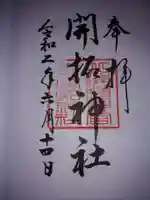 奉拝
開拓神社
令和二年六月十四日